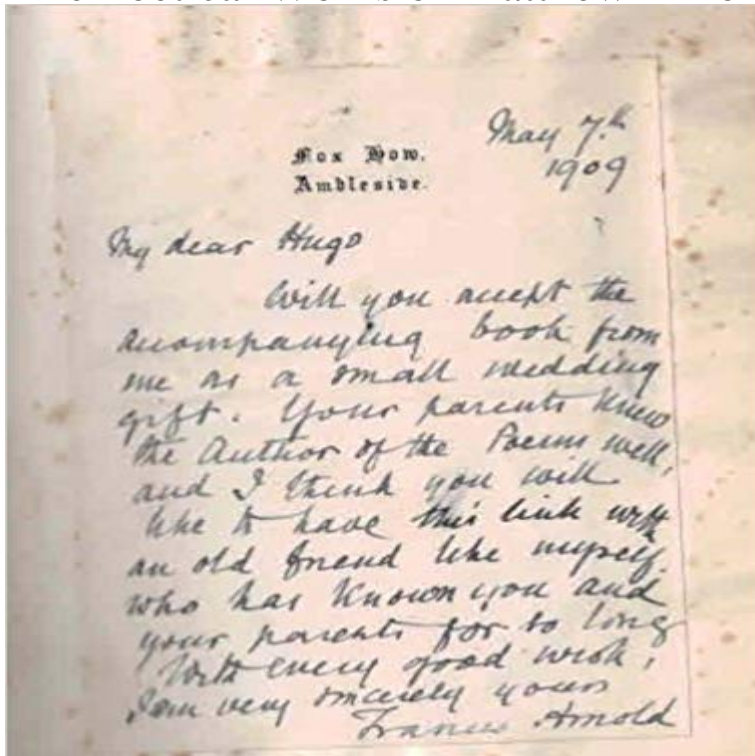 May 7th
1909
Fox How,
Ambleside.
My dear Hugo
Will you accept the
accompanying book from
me as a small wedding
gift. Your parents knew
the Author of the Poems well,
and I think you will
like to have this link with
an old friend like myself.
who has known you and
your parents for so long
With every good wish,
I am very sincerely yours
Frances Arnold